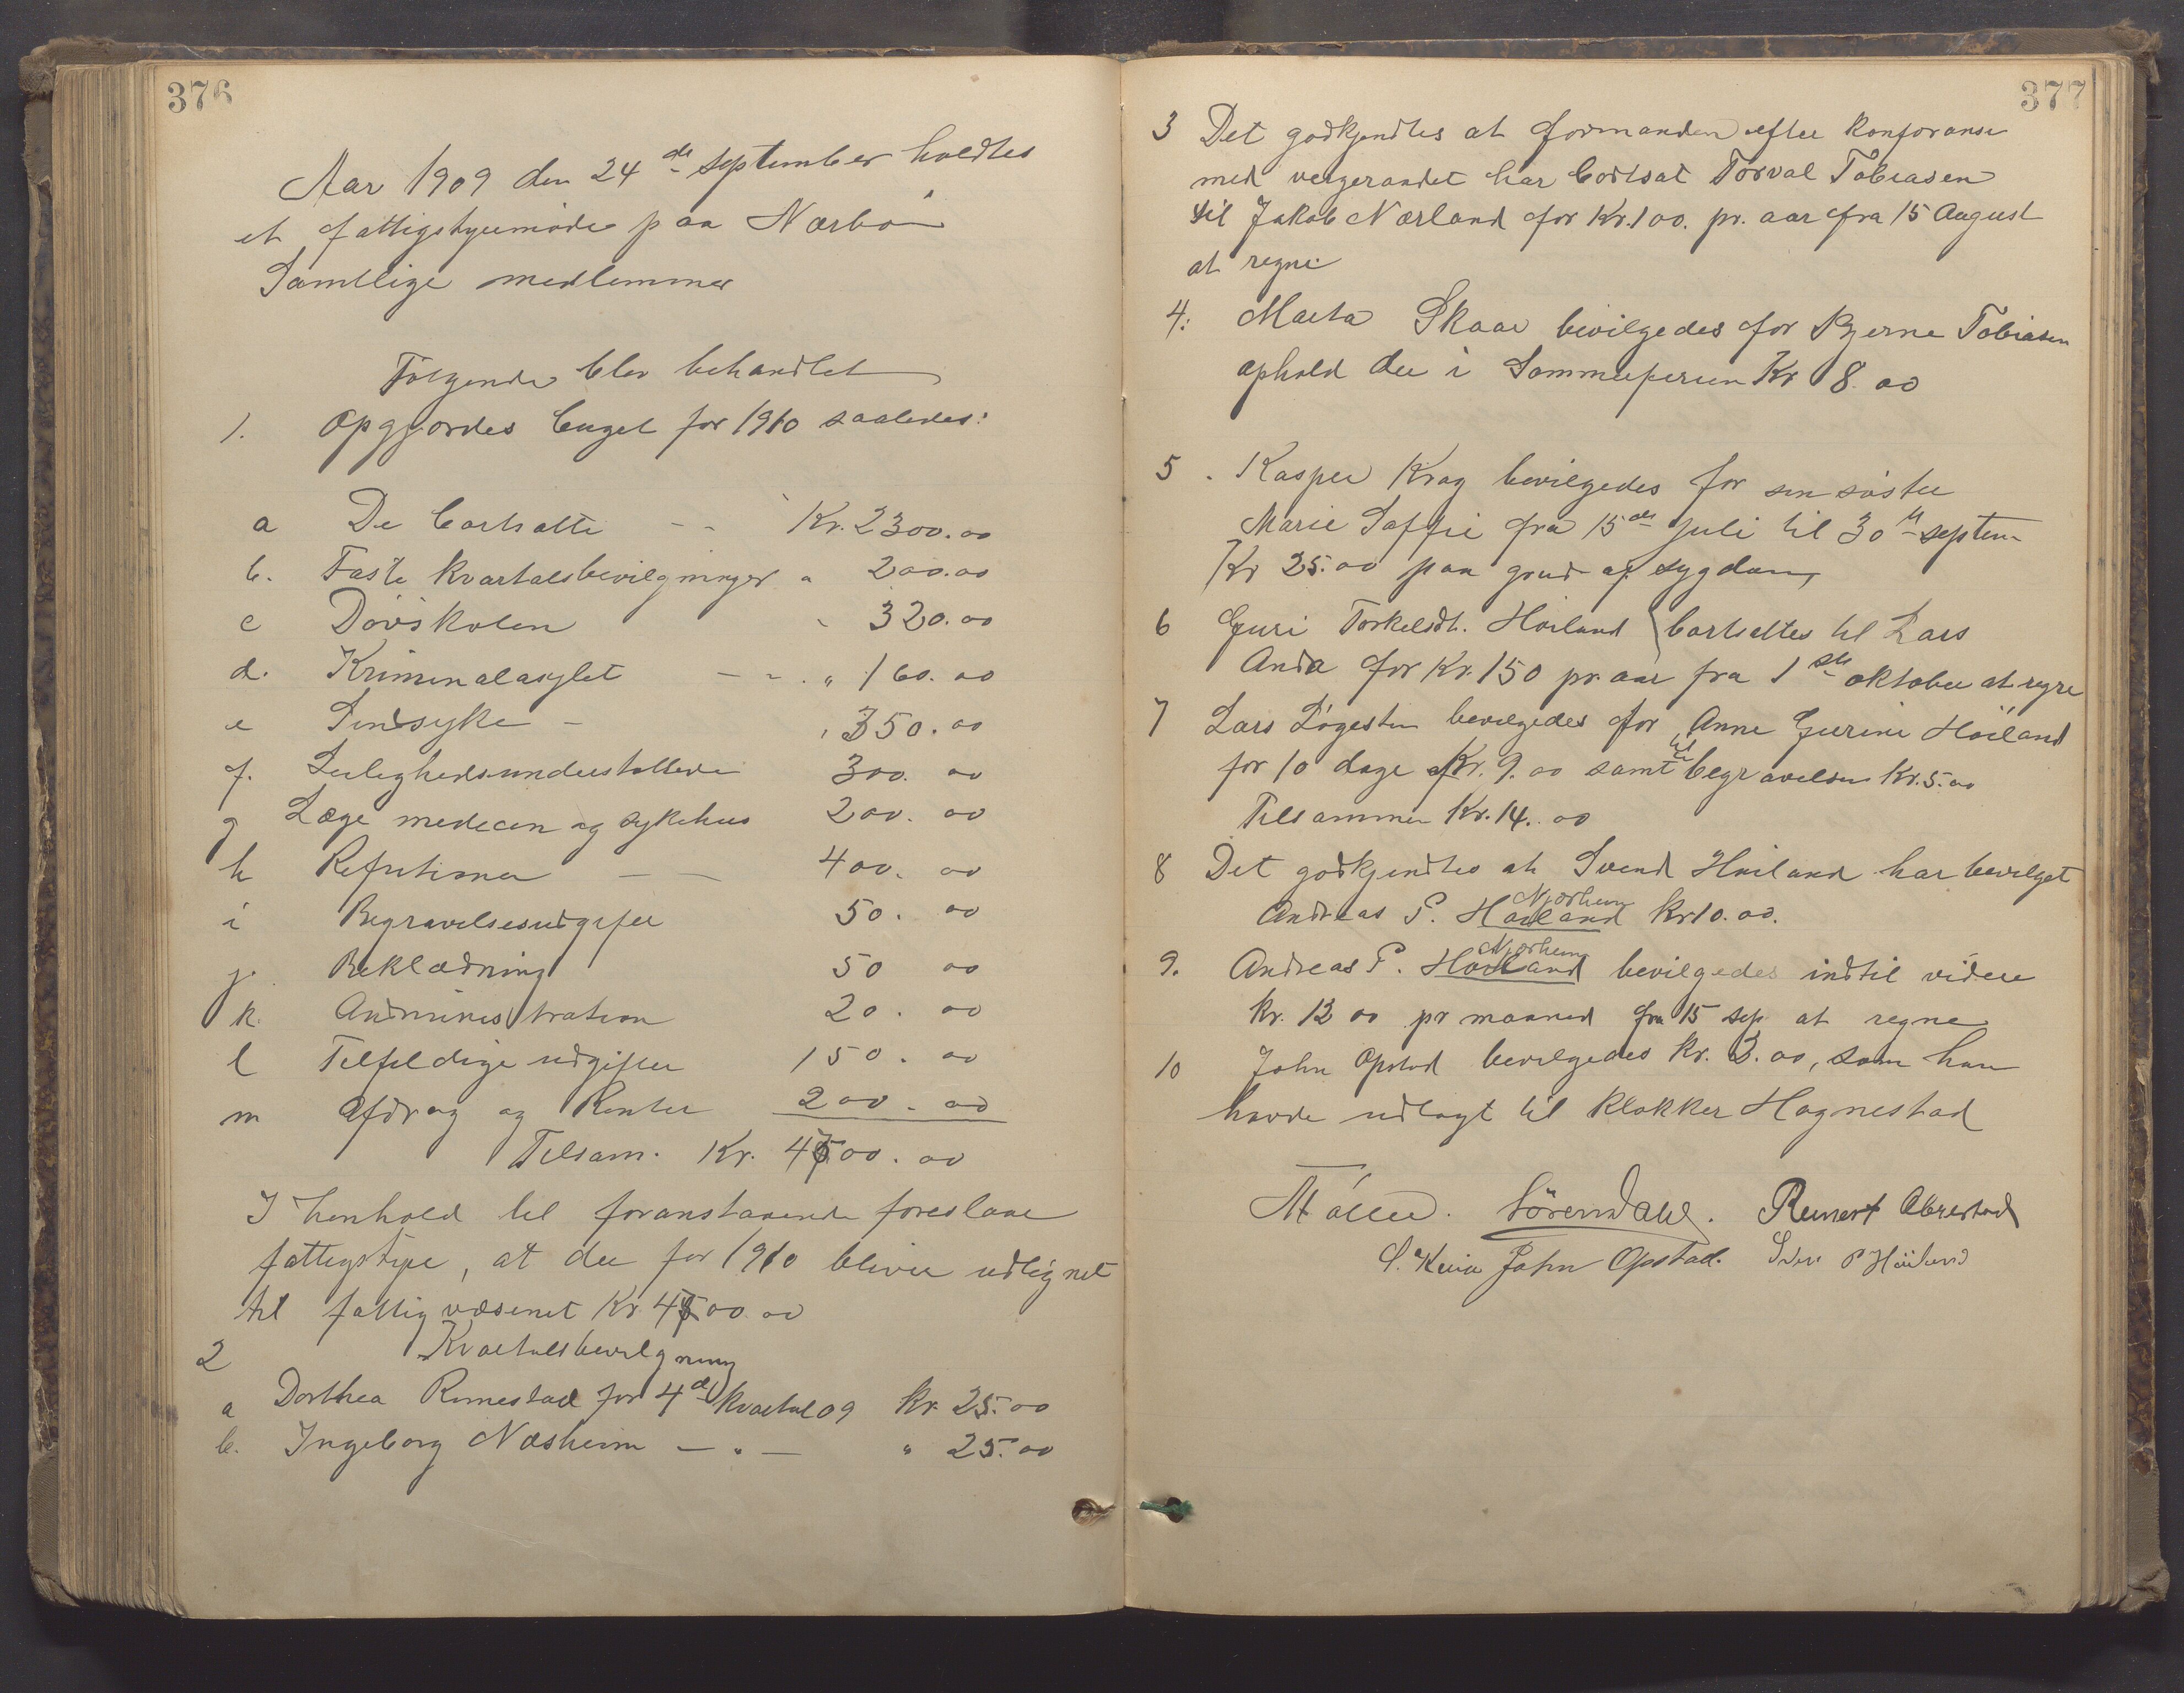 376
Aar 1909 den 24de september holdtes
et fattigstyremøde paa Nærbø
Samtlige medlemmer
Følgende blev behandlet
1. Opgjordes buget for 1910 saaledes:
a De bortsatte - - Kr. 2300.00
b. Faste kvartalsbevilgninger " 200.00
c Døvskolen " 320.00
d. Kriminalasylet - - " 160.00
e Sindsyke - " 350.00
f. Leilighedsunderstøttede 300.00
g Læge medecin og sykehus 200.00
h Refutioner - - 400.00
i Begravelsesudgifter 50.00
j. Beklædning 50 00
k. Andministration 20.00
l Tilfeldige udgifter 150.00
m Afdrag og Renter 200.00
Tilsam. Kr. 4700.00
I henhold til foranstaaende foreslaar
fattigstyre, at der for 1910 bliver udlignet
til fattigvæsenet Kr. 4700.00
2 Kvartalsbevilgning
a Dorthea Rimestad for 4de kvartal 09 Kr. 25.00
b. Ingeborg Næsheim - " - " 25.00
377
3 Det godkjendtes at formanden efter konforanse
med vergeraadet har bortsat Torval Tobiasen
til Jakob Nærland for Kr. 100. pr. aar fra 15 August
at regne
4: Marta Skaar bevilgedes for Bjerne Tobiasen
ophold der i Sommerferien Kr 8.00
5. Kasper Krag bevilgedes for sin søster
Marie Saffie fra 15de juli til 30te septem
Kr 25.00 paa grund af sygdom
6 Guri Torkelsdt. Høiland bortsattes til Lars
Anda for Kr. 150 pr. aar fra 1ste oktober at regne
7 Lars Løgesten bevilgedes for Anne Gurine Høiland
for 10 dage Kr. 9.00 samt til begravelsen Kr. 5.00
Tilsammen Kr. 14.00
8 Det godkjendtes at Svend Høiland har bevilget
Njorheim
Andreas P. Høiland kr 10.00.
Njorheim
9. Andreas P. Høiland bevilgedes indtil videre
kr. 12 00 pr maaned fra 15 sep at regne
10 John Opstad bevilgedes kr. 3.00, som han
havde udlagt til Klokker Hognestad
Sören Dahl. Reinert Obrestad
John Opstad. P Höiland